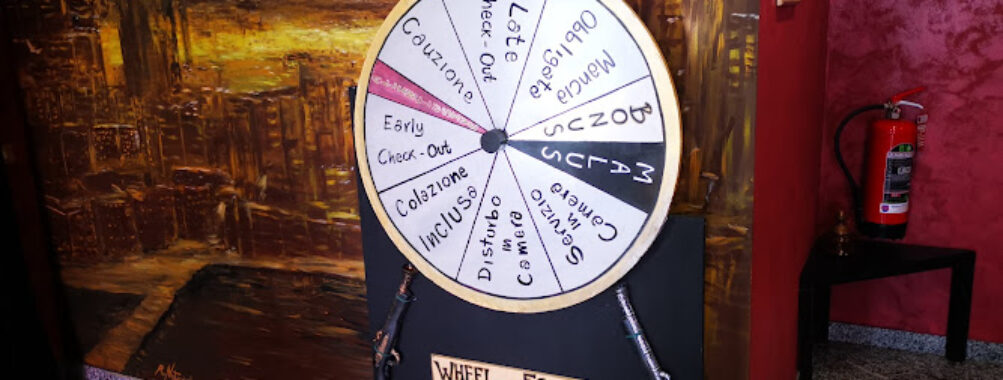 Cauzione
Late
Check-Out
Mancia
Obbligata
BONUS
MALUS
Servizio
in
Camera
Disturbo
in
Camera
Colazione
InClUsa
Early
Check-Out
WHEEL